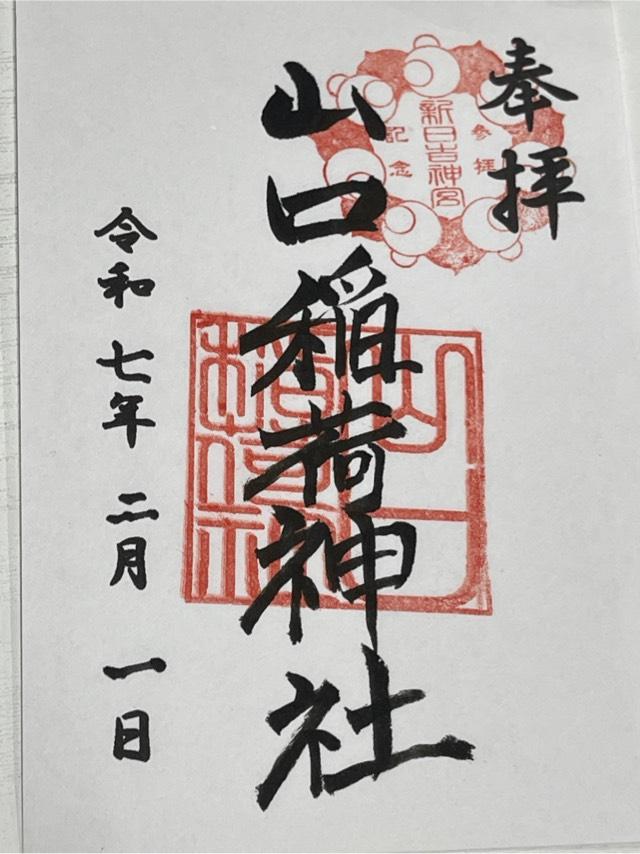 奉拝
参拝
新日吉神宮
記念
山口稲荷神社
令和七年二月一日